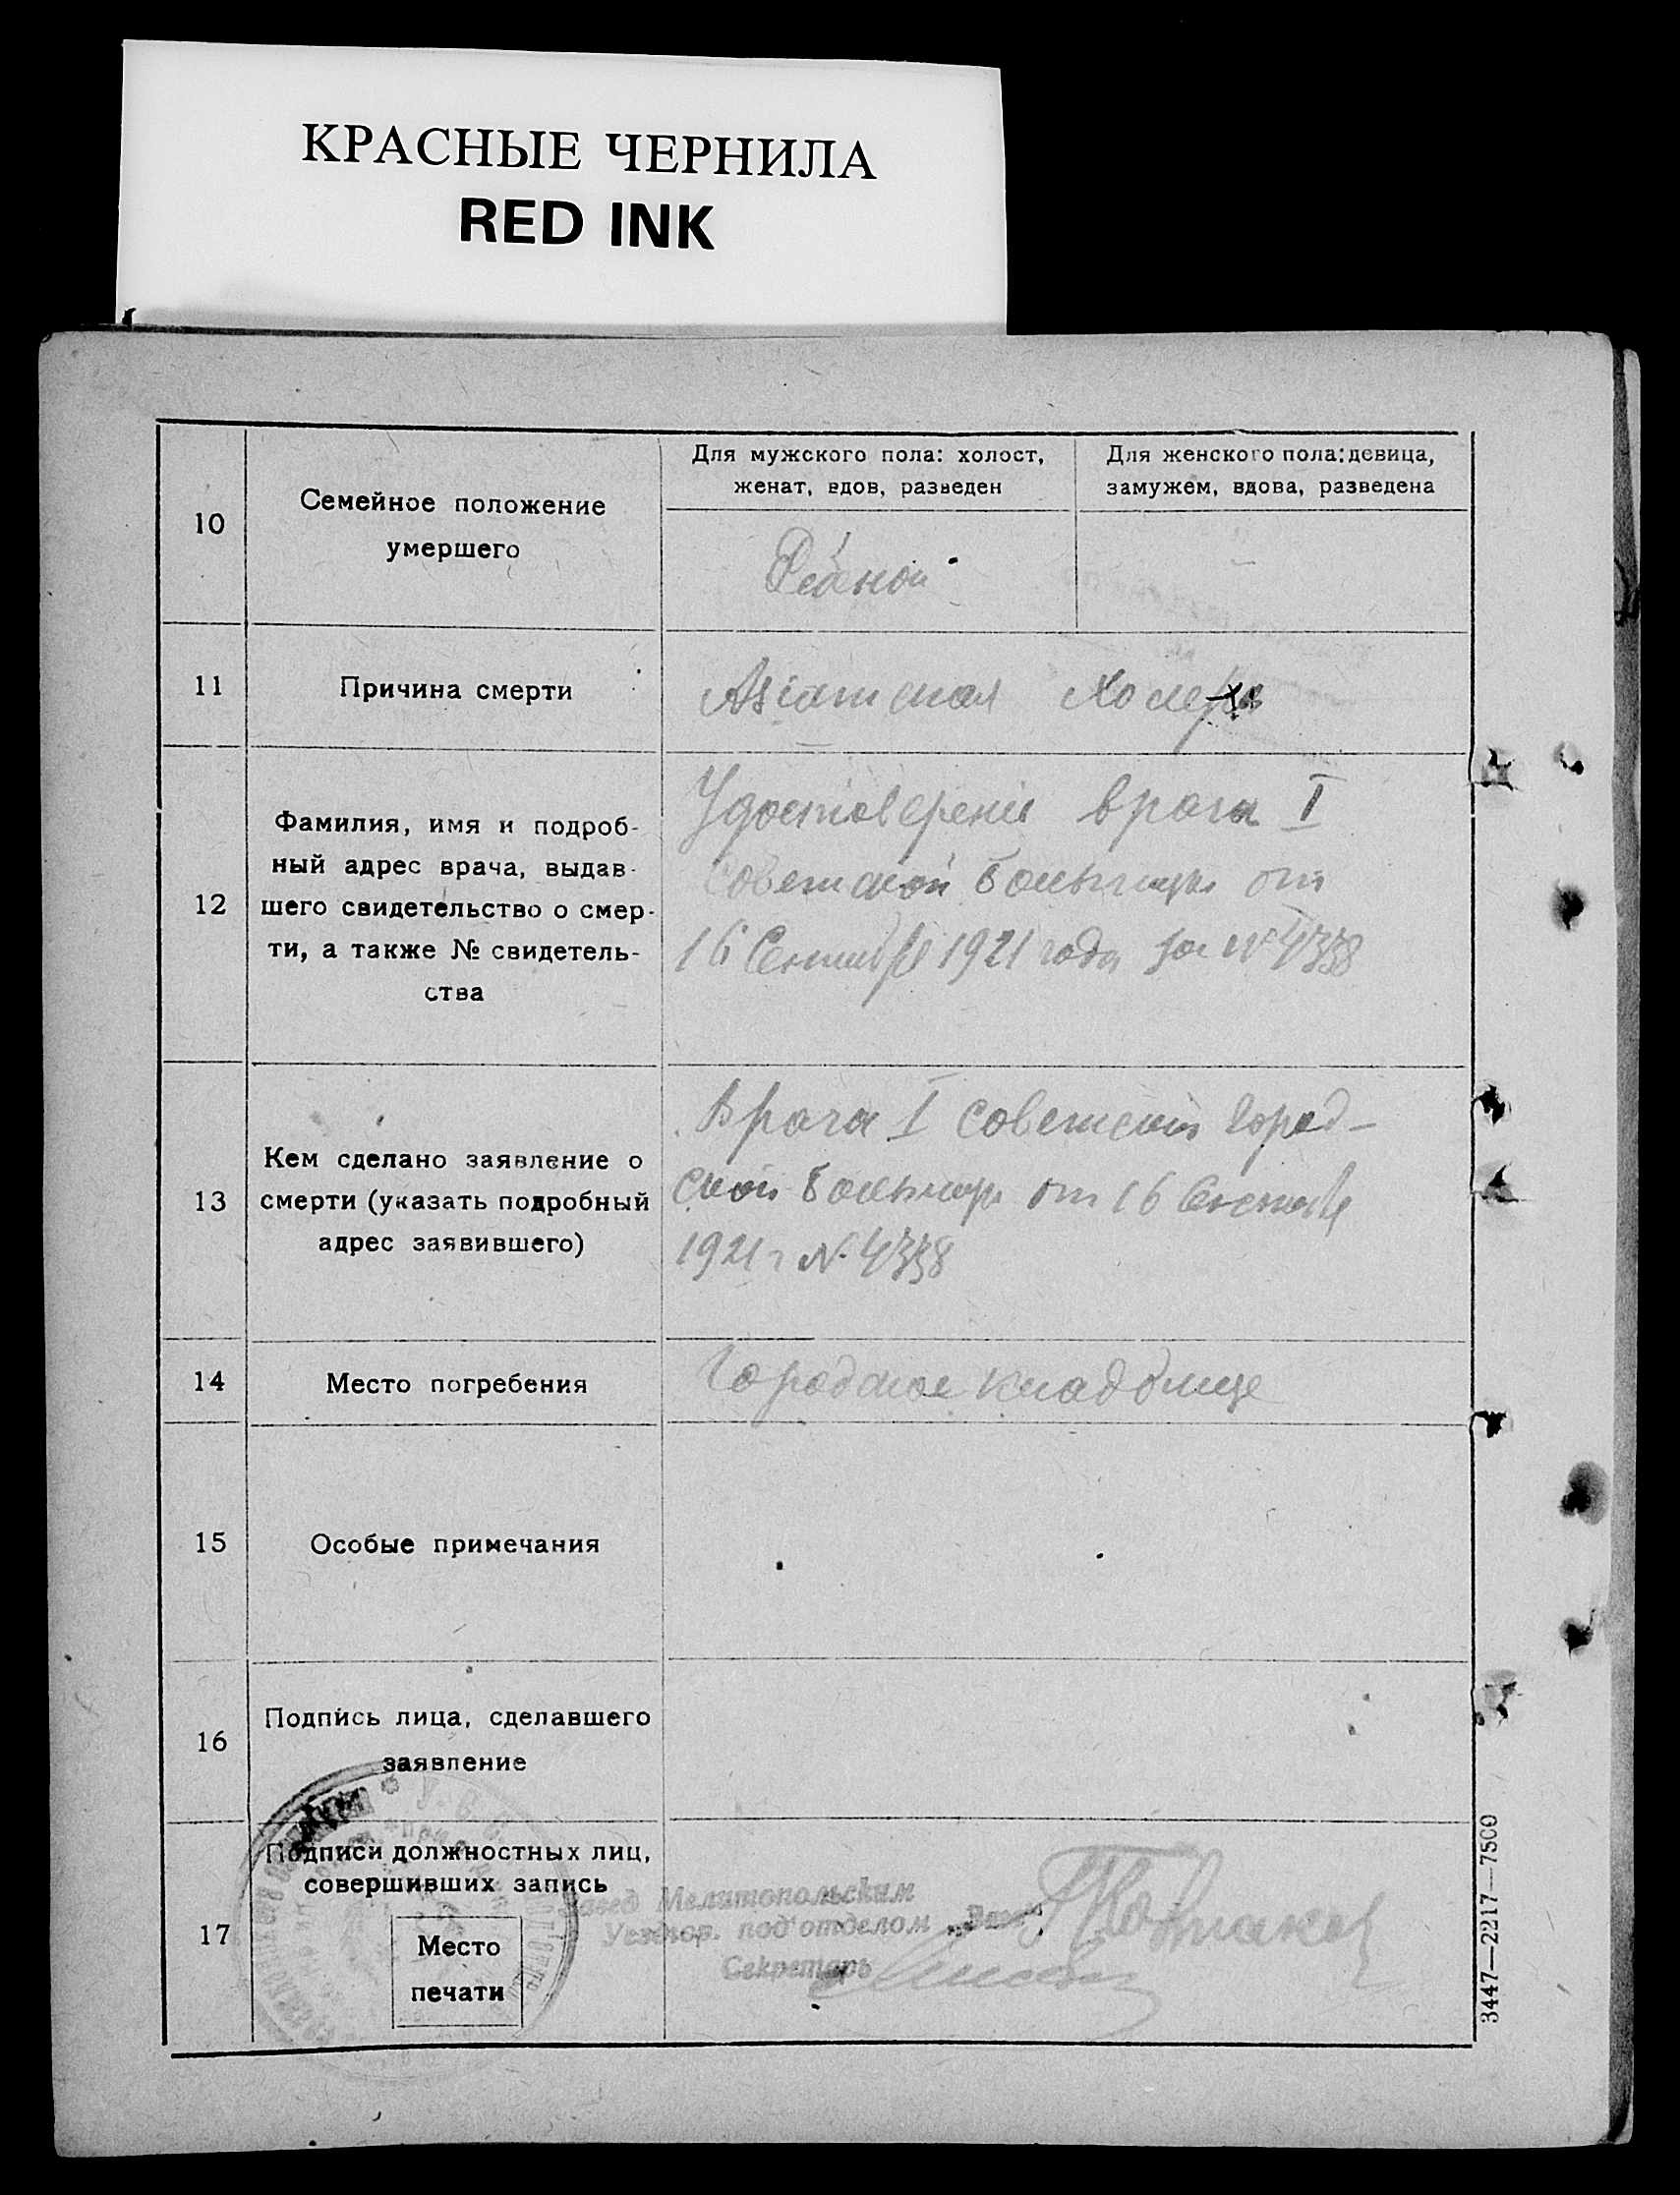 КРАСНЫЕ ЧЕРНИЛА
RED INK
10
Семейное положение
умершего
Для мужского пола: холост,
женат, вдов, разведен
Для женского пола: девица,
замужем, вдова, разведена
Ребенок
11
Причина смерти
Азиатская Холера
12
Фамилия, имя и подроб-
ный адрес врача, выдав-
шего свидетельство о смер-
ти, а также № свидетель-
ства
Удостоверение врача I
Советской больницы от
16 Сентября 1921 года за № 4338
13
Кем сделано заявление о
смерти (указать подробный
адрес заявившего)
Врача I советской город-
ской больницы от 16 Сентября
1921 г N. 4338
14
Место погребения
Городское кладбище
15
Особые примечания
16
Подпись лица, сделавшего
заявление
17
Подписи должностных лиц,
совершивших запись
Место
печати
Завед Мелитопольским
Уезднор. под'отделом
Секретарь
3447—2217—7500